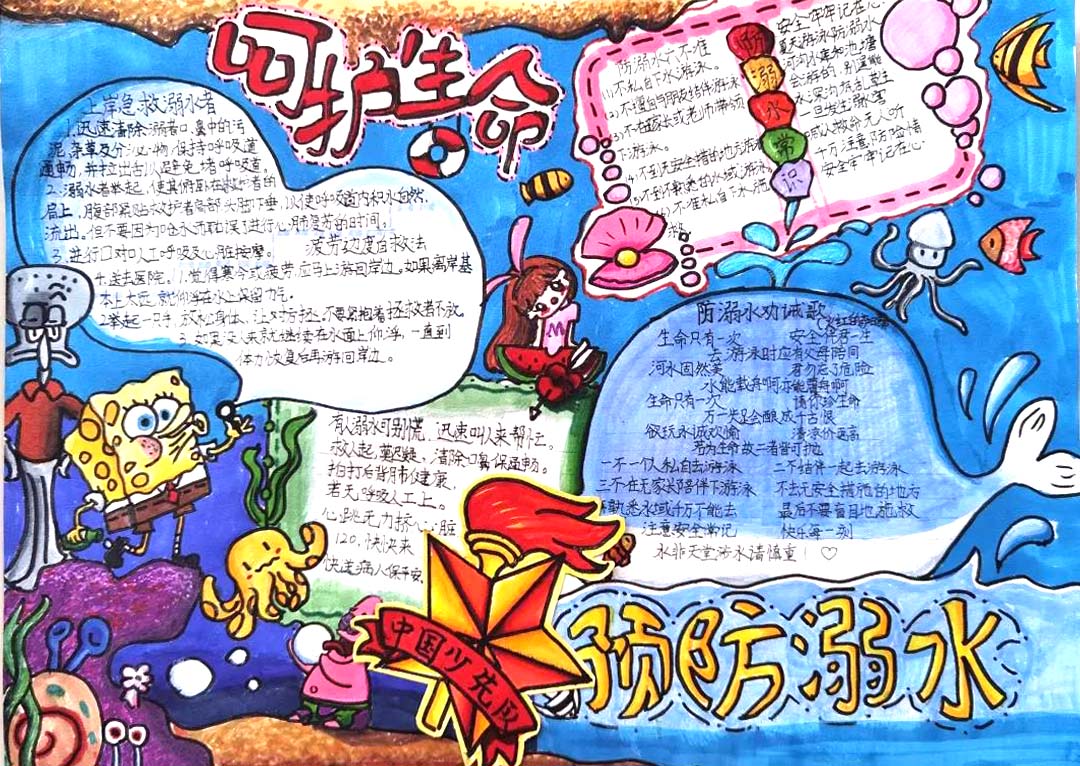 呵护生命
上岸急救溺水者
1.迅速清除溺者口、鼻中的污
泥、杂草及分泌物,保持呼吸道
通畅,并拉出舌头,避免堵呼吸道。
2.溺水者举起,使其俯卧在救护者的
肩上,腹部紧贴救护者肩部头脚下垂,以使呼吸道内积水自然
流出。但不要因为呛水而耽误了进行心肺复苏的时间。
3.进行口对口人工呼吸及心脏按摩。
疲劳过度自救法
4.送去医院。1.觉得寒冷或疲劳,应马上游回岸边。如果离岸甚
本上太远,就仰浮在水上保留力气。
2.举起一只手,放松身体,让对方拯,不要紧抱着拯救者不放。
3.如果没人来就继续在水面上仰浮,一直到
体力恢复后再游回岸边。
防溺水六不准
(1)不私自下水游泳。
(2)不擅自与朋友结伴游泳
不在家长或老师带领
下游泳。
(5)不到不熟悉的水域游泳
防溺水常识
安全牢牢记在心
夏天游泳防溺水
河沟水库和池塘
一旦发生溺害
喊人救命无人听
千万注意防险情
安全牢牢记在心
有人溺水可别慌,迅速叫人来帮忙。
救人起,莫迟疑,清除口鼻保通畅。
拍打后背肺部健康,
若无呼吸人工上。
心跳无力挤心脏
120,快快来
快送病人保平安
防溺水劝诫歌
生命只有一次 安全伴君一生
去游泳时应有父母陪同
河水固然美 君勿忘了危险
水能载舟啊亦能覆舟啊
生命只有一次 请你珍生命
万一失足会酿成千古恨
欲玩水诚欢愉 清凉价更高
若为生命故二者皆可抛
一不一个人私自去游泳 二不结伴一起去游泳
三不在无家长陪伴下游泳 不去无安全措施的地方
不熟悉水域千万不能去 最后不要盲目地施救
注意安全常记 快乐每一刻
水非天堂涉水请慎重!
中国少先队
预防溺水